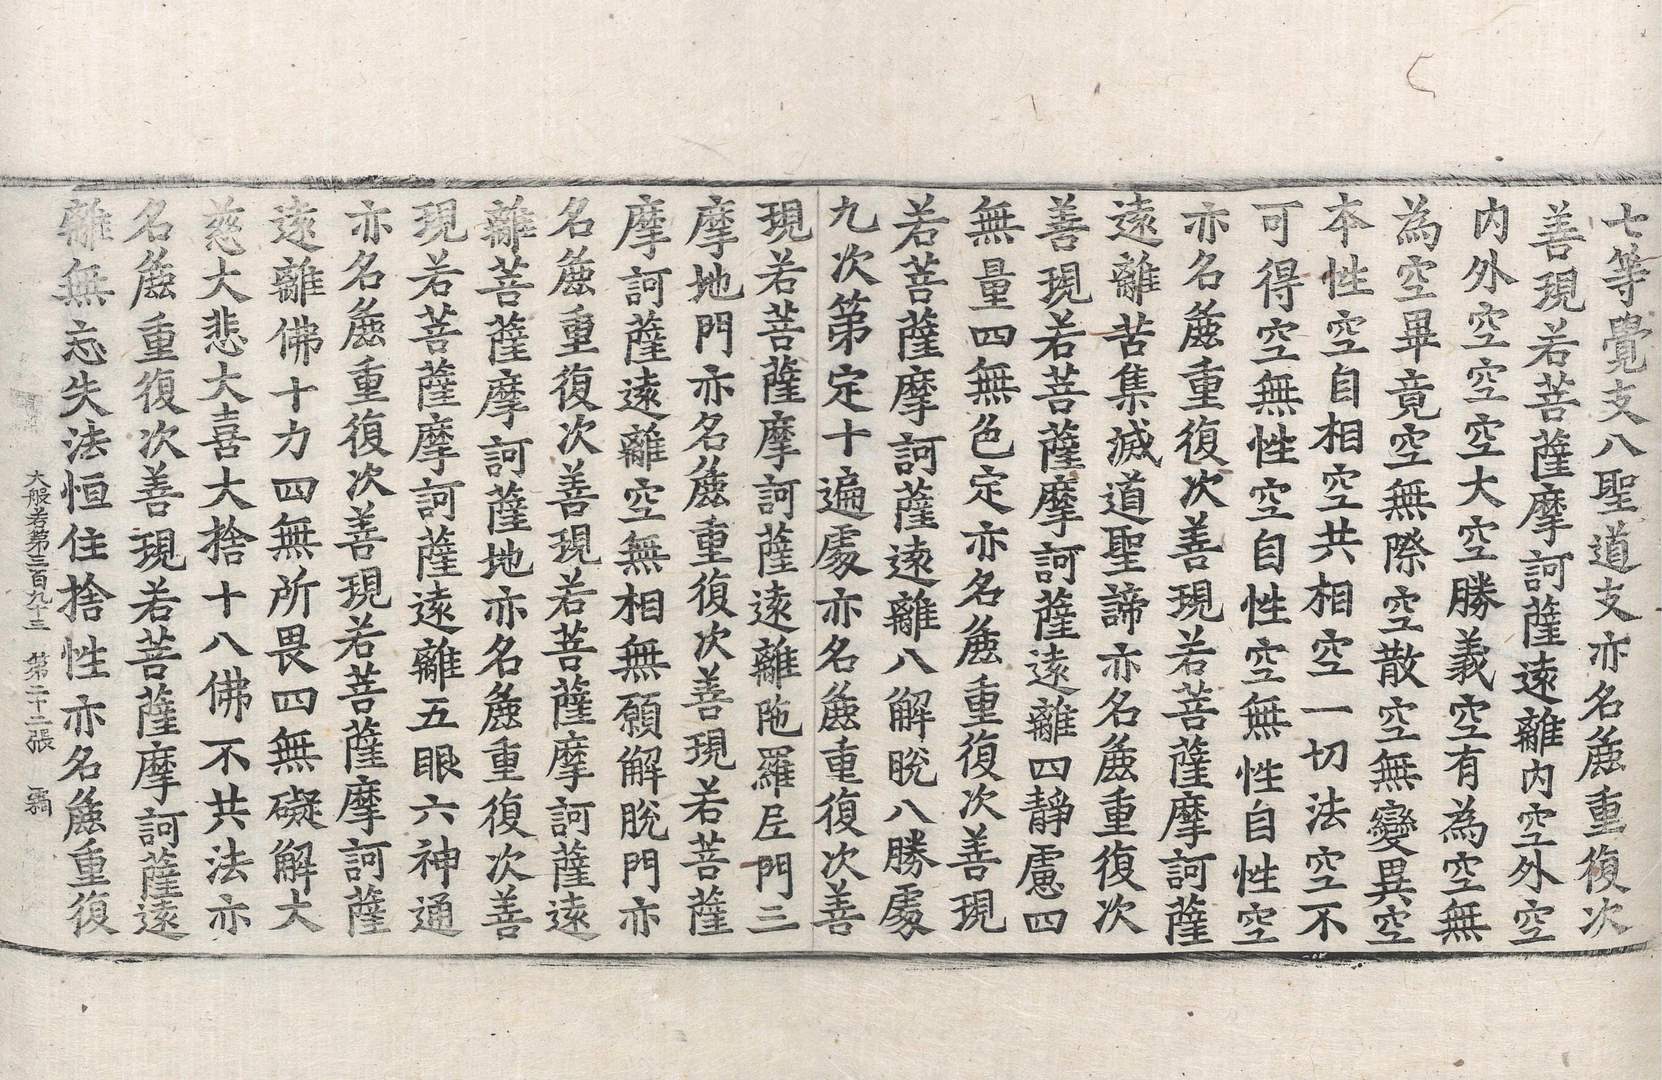 七等覺支八聖道支亦名麁重復次
善現若菩薩摩訶薩遠離內空外空
內外空空空大空勝義空有為空無
為空畢竟空無際空散空無變異空
本性空自相空共相空一切法空不
可得空無性空自性空無性自性空
亦名麁重復次善現若菩薩摩訶薩
遠離苦集滅道聖諦亦名麁重復次
善現若菩薩摩訶薩遠離四靜慮四
無量四無色定亦名麁重復次善現
若菩薩摩訶薩遠離八解脫八勝處
九次第定十遍處亦名麁重復次善
現若菩薩摩訶薩遠離陁羅尼門三
摩地門亦名麁重復次善現若菩薩
摩訶薩遠離空無相無願解脫門亦
名麁重復次善現若菩薩摩訶薩遠
離菩薩摩訶薩地亦名麁重復次善
現若菩薩摩訶薩遠離五眼六神通
亦名麁重復次善現若菩薩摩訶薩
遠離佛十力四無所畏四無礙解大
慈大悲大喜大捨十八佛不共法亦
名麁重復次善現若菩薩摩訶薩遠
離無忘失法恒住捨性亦名麁重復
大般若第三百九十三 第二十二張